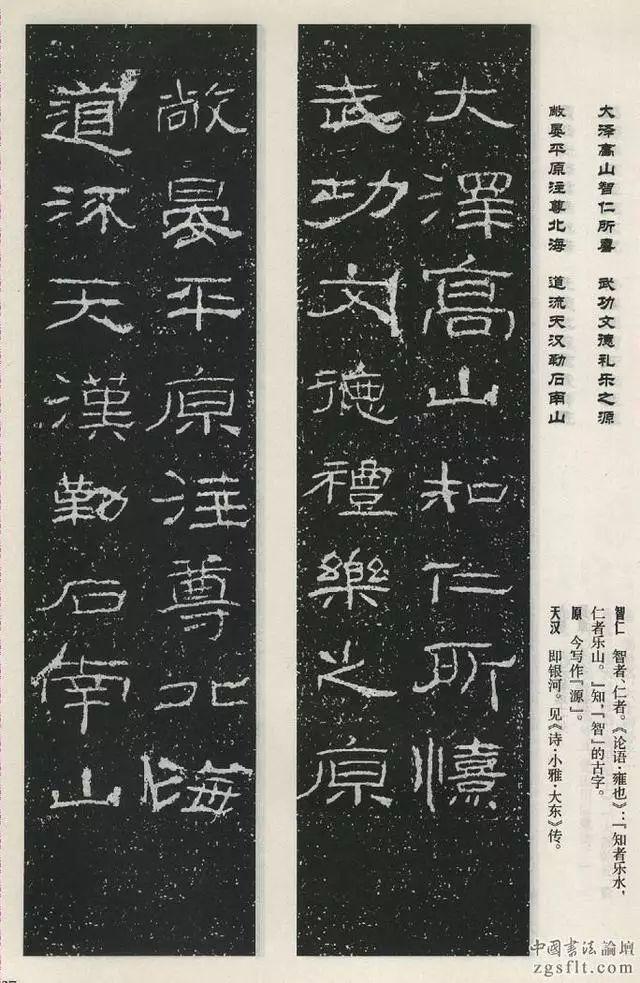 大泽高山智仁所喜　武功文德礼乐之源
敞晏平原注尊北海　道流天汉勒石南山
智仁　智者、仁者。《论语·雍也》：『知者乐水，
仁者乐山。』知，『智』的古字。
原　今写作『源』。
天汉　即银河。见《诗·小雅·大东》传。
大澤高山知仁所憘
武功文德禮樂之原
敞晏平原注尊北海
道流天漢勒石南山
中國書法論壇
zgsflt.com